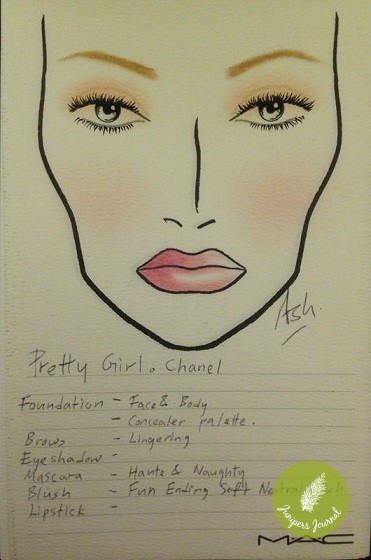 Ash.
Pretty Girl. Chanel
Foundation - Face & Body
- Concealer palette.
Brows - Lingering
Eyeshadow -
Mascara - Haute & Naughty
Blush - Fun Ending Soft
Lipstick -
Junipers Journal
MAC